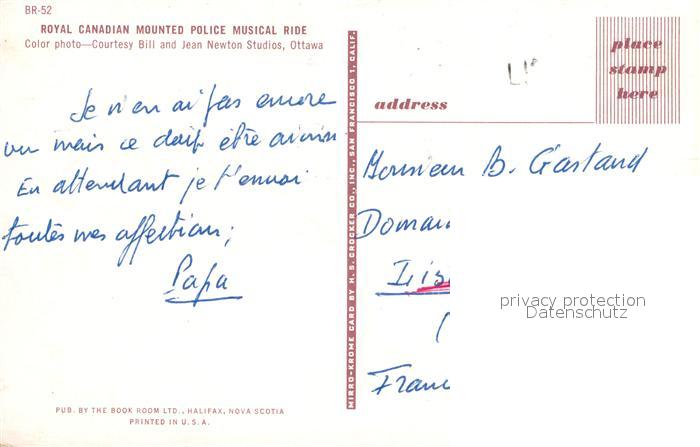 BR-52
ROYAL CANADIAN MOUNTED POLICE MUSICAL RIDE
Color photo—Courtesy Bill and Jean Newton Studios, Ottawa
Je n'en ai pas encore
vu mais ce doit être
En attendant je t'envoi
toutes mes affection;
Papa
PUB. BY THE BOOK ROOM LTD., HALIFAX, NOVA SCOTIA
PRINTED IN U.S.A.
MIRRO-KROME CARD BY H. S. CROCKER CO., INC., SAN FRANCISCO 1, CALIF.
place
stamp
here
address
Monsieur B. Gastaud
Domain
Fran
privacy protection
Datenschutz